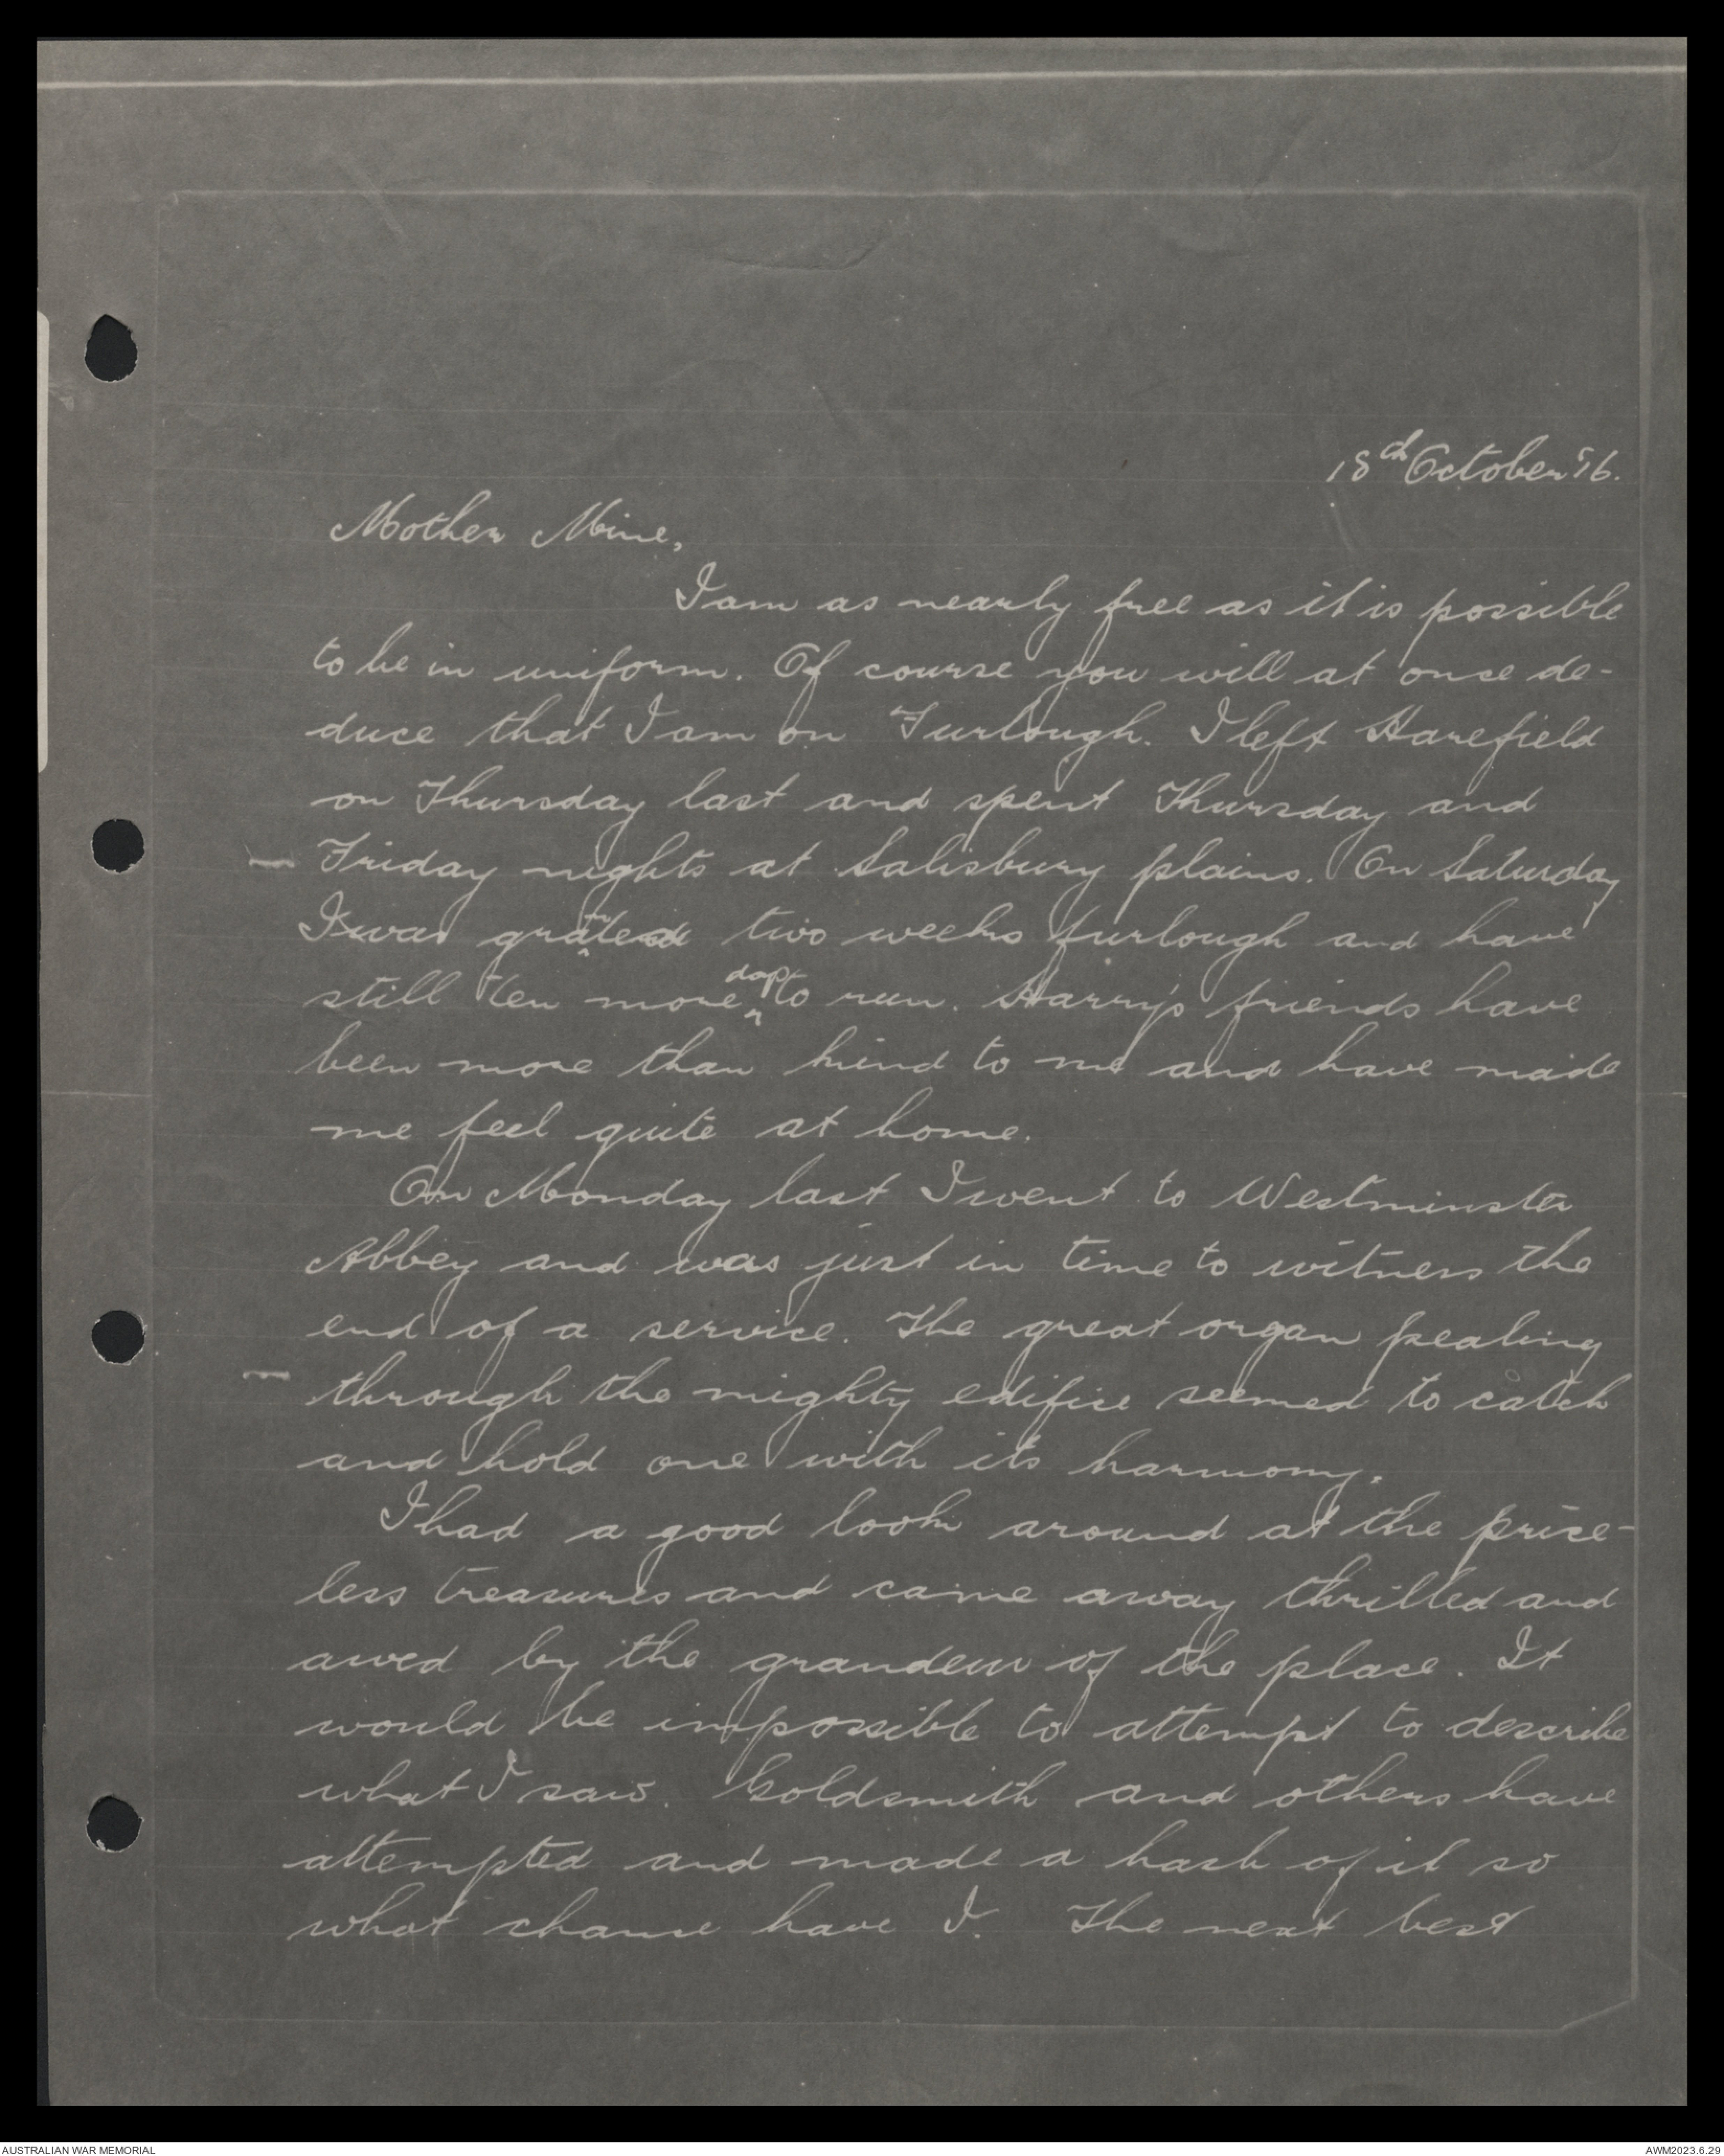 18th October '16.
Mother Mine,
I am as nearly free as it is possible
to be in uniform. Of course you will at once de-
duce that I am on Furlough. I left Harefield
on Thursday last and spent Thursday and
Friday nights at Salisbury plains. On Saturday
I was granted two weeks furlough and have
still ten more days to run. Harry's friends have
been more than kind to me and have made
me feel quite at home.
On Monday last I went to Westminster
Abbey and was just in time to witness the
end of a service. The great organ pealing
through the mighty edifice seemed to catch
and hold one with its harmony.
I had a good look around at the price-
less treasures and came away thrilled and
awed by the grandeur of the place. It
would be impossible to attempt to describe
what I saw. Goldsmith and others have
attempted and made a hash of it so
what chance have I. The next best
AUSTRALIAN WAR MEMORIAL
AWM2023.6.29